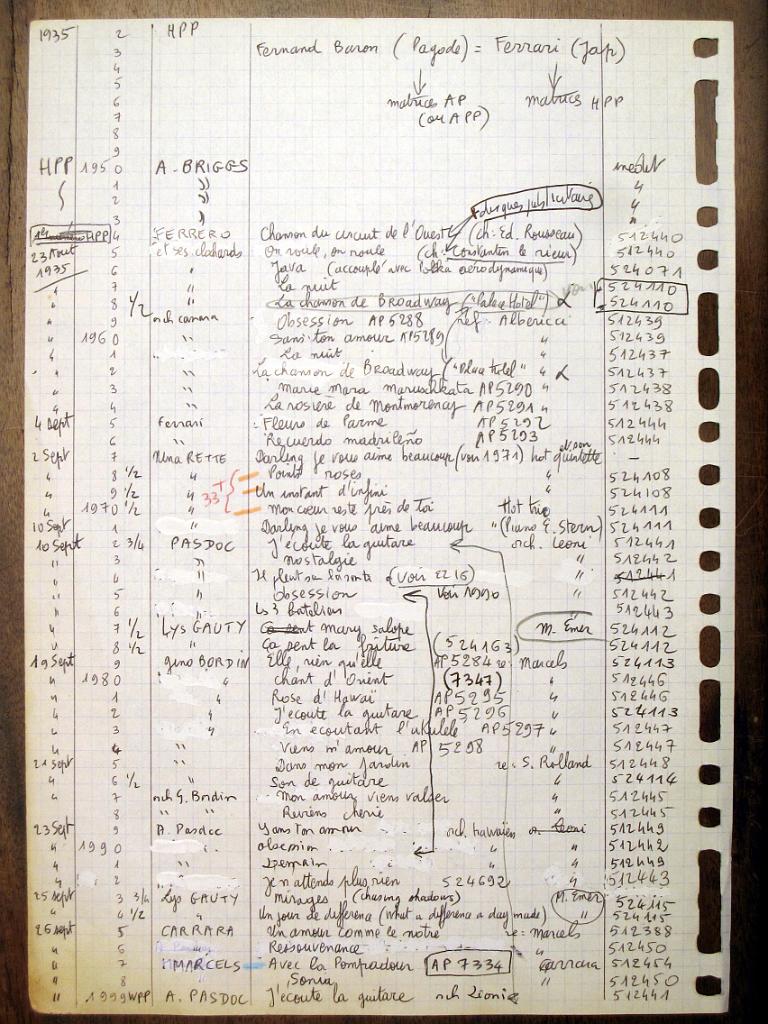 1935 2 HPP
3 Fernand Baron (Pagode) = Ferrari (Jap)
4
5
6 matrices AP matrices HPP
7 (ou APP)
8
9
HPP 1950 A. BRIGGS inédit
1 " "
2 " "
3 " disques publicitaires "
HPP 4 FERRERO Chanson du circuit de l'Ouest (ch: Ed. Rousseau) 512440
23 Aout 5 et ses clochards On roule, on roule (ch: Constantin le rieur) 512440
1935 6 " Java (accouplé avec Polka aérodynamique) 524071
" 7 " La nuit 524110
" 8 1/2 " La chanson de Broadway ("Palace Hotel") α 524110
" 9 orch camera Obsession AP 5288 ref: Alberica 512439
" 1960 " Sans ton amour AP 5289 " 512439
" 1 " La nuit " 512437
" 2 " La chanson de Broadway ("Palace Hotel") " α 512437
" 3 " Marie Mara Maruschkata AP 5290 " 512438
" 4 " La rosière de Montmorency AP 5291 " 512438
4 Sept 5 Ferrari Fleurs de Parme AP 5292 512444
" 6 " Recuerdo madrileño AP 5293 512444
2 Sept 7 Nina RETTE Darling je vous aime beaucoup (voir 1971) hot quintette -
" 8 1/2 " Points roses 524108
" 9 1/2 33T " Un instant d'infini 524108
" 1970 1/2 " Mon coeur reste près de toi Hot trio 524111
10 Sept 1 " Darling je vous aime beaucoup " (Piano E. Stern) 524111
10 Sept 2 3/4 PASDOC J'écoute la guitare orch. Leoni 512441
" 3 " nostalgie " 512442
" 4 " Il pleut sur la route (voir 2216) " 512441
" 5 " Obsession voir 1990 " 512442
" 6 " Les 3 bateliers 512443
" 7 1/2 LYS GAUTY mary salope M. Emer 524112
" 8 1/2 " Ça sent la friture (524163) 524112
19 Sept 9 gino BORDIN Elle, rien qu'elle AP 5284 re: Marcels 524113
" 1980 " chant d'Orient (7347) " 512446
" 1 " Rose d'Hawaï AP 5295 " 512446
" 2 " J'écoute la guitare AP 5296 " 524113
" 3 " En écoutant l'ukulele AP 5297 " 512447
" 4 " Viens m'amour AP 5298 " 512447
21 Sept 5 " Dans mon jardin re: S. Rolland 512448
" 6 1/2 " Son de guitare " 524114
" 7 orch G. Bordin Mon amour viens valser " 512445
" 8 " Reviens chérie " 512445
23 Sept 9 A. Pasdoc Sans ton amour orch hawaïen Leoni 512449
" 1990 " obsession " " 512442
" 1 " Demain " " 512449
" 2 " Je n'attends plus rien 524692 " 512443
25 sept 3 3/4 Lys GAUTY mirages (chasing shadows) M. Emer 524115
" 4 1/2 " Un jour de différence (What a difference a day made) " 524115
26 sept 5 CARRARA Un amour comme le notre re: Marcels 512388
" 6 Ressouvenance " 512450
" 7 MARCELS Avec la Pompadour AP 7334 Carrara 512454
" 8 Sonia " 512450
" 1999 WPP A. PASDOC J'écoute la guitare orch Léoni 512441